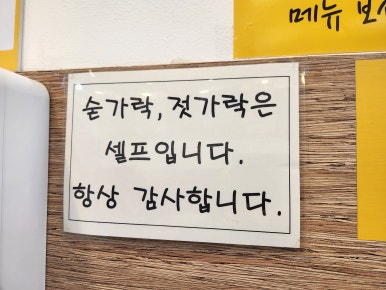 메뉴
숟가락, 젓가락은
셀프입니다.
항상 감사합니다.